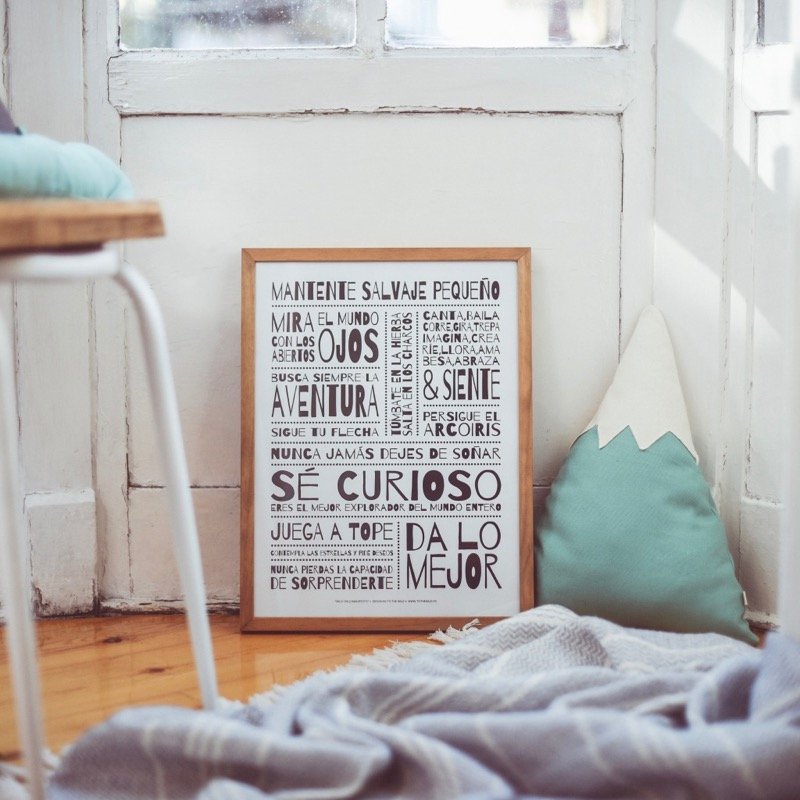 MANTENTE SALVAJE PEQUEÑO
MIRA EL MUNDO
CON LOS
ABIERTOS OJOS
BUSCA SIEMPRE LA
AVENTURA
SIGUE TU FLECHA
TÚMBATE EN LA HIERBA
SALTA EN LOS CHARCOS
CANTA,BAILA
CORRE,GIRA,TREPA
IMAGINA,CREA
RÍE,LLORA,AMA
BESA,ABRAZA
& SIENTE
PERSIGUE EL
ARCOIRIS
NUNCA JAMÁS DEJES DE SOÑAR
SÉ CURIOSO
ERES EL MEJOR EXPLORADOR DEL MUNDO ENTERO
JUEGA A TOPE
CONTEMPLA LAS ESTRELLAS Y PIDE DESEOS
NUNCA PIERDAS LA CAPACIDAD
DE SORPRENDERTE
DA LO
MEJOR